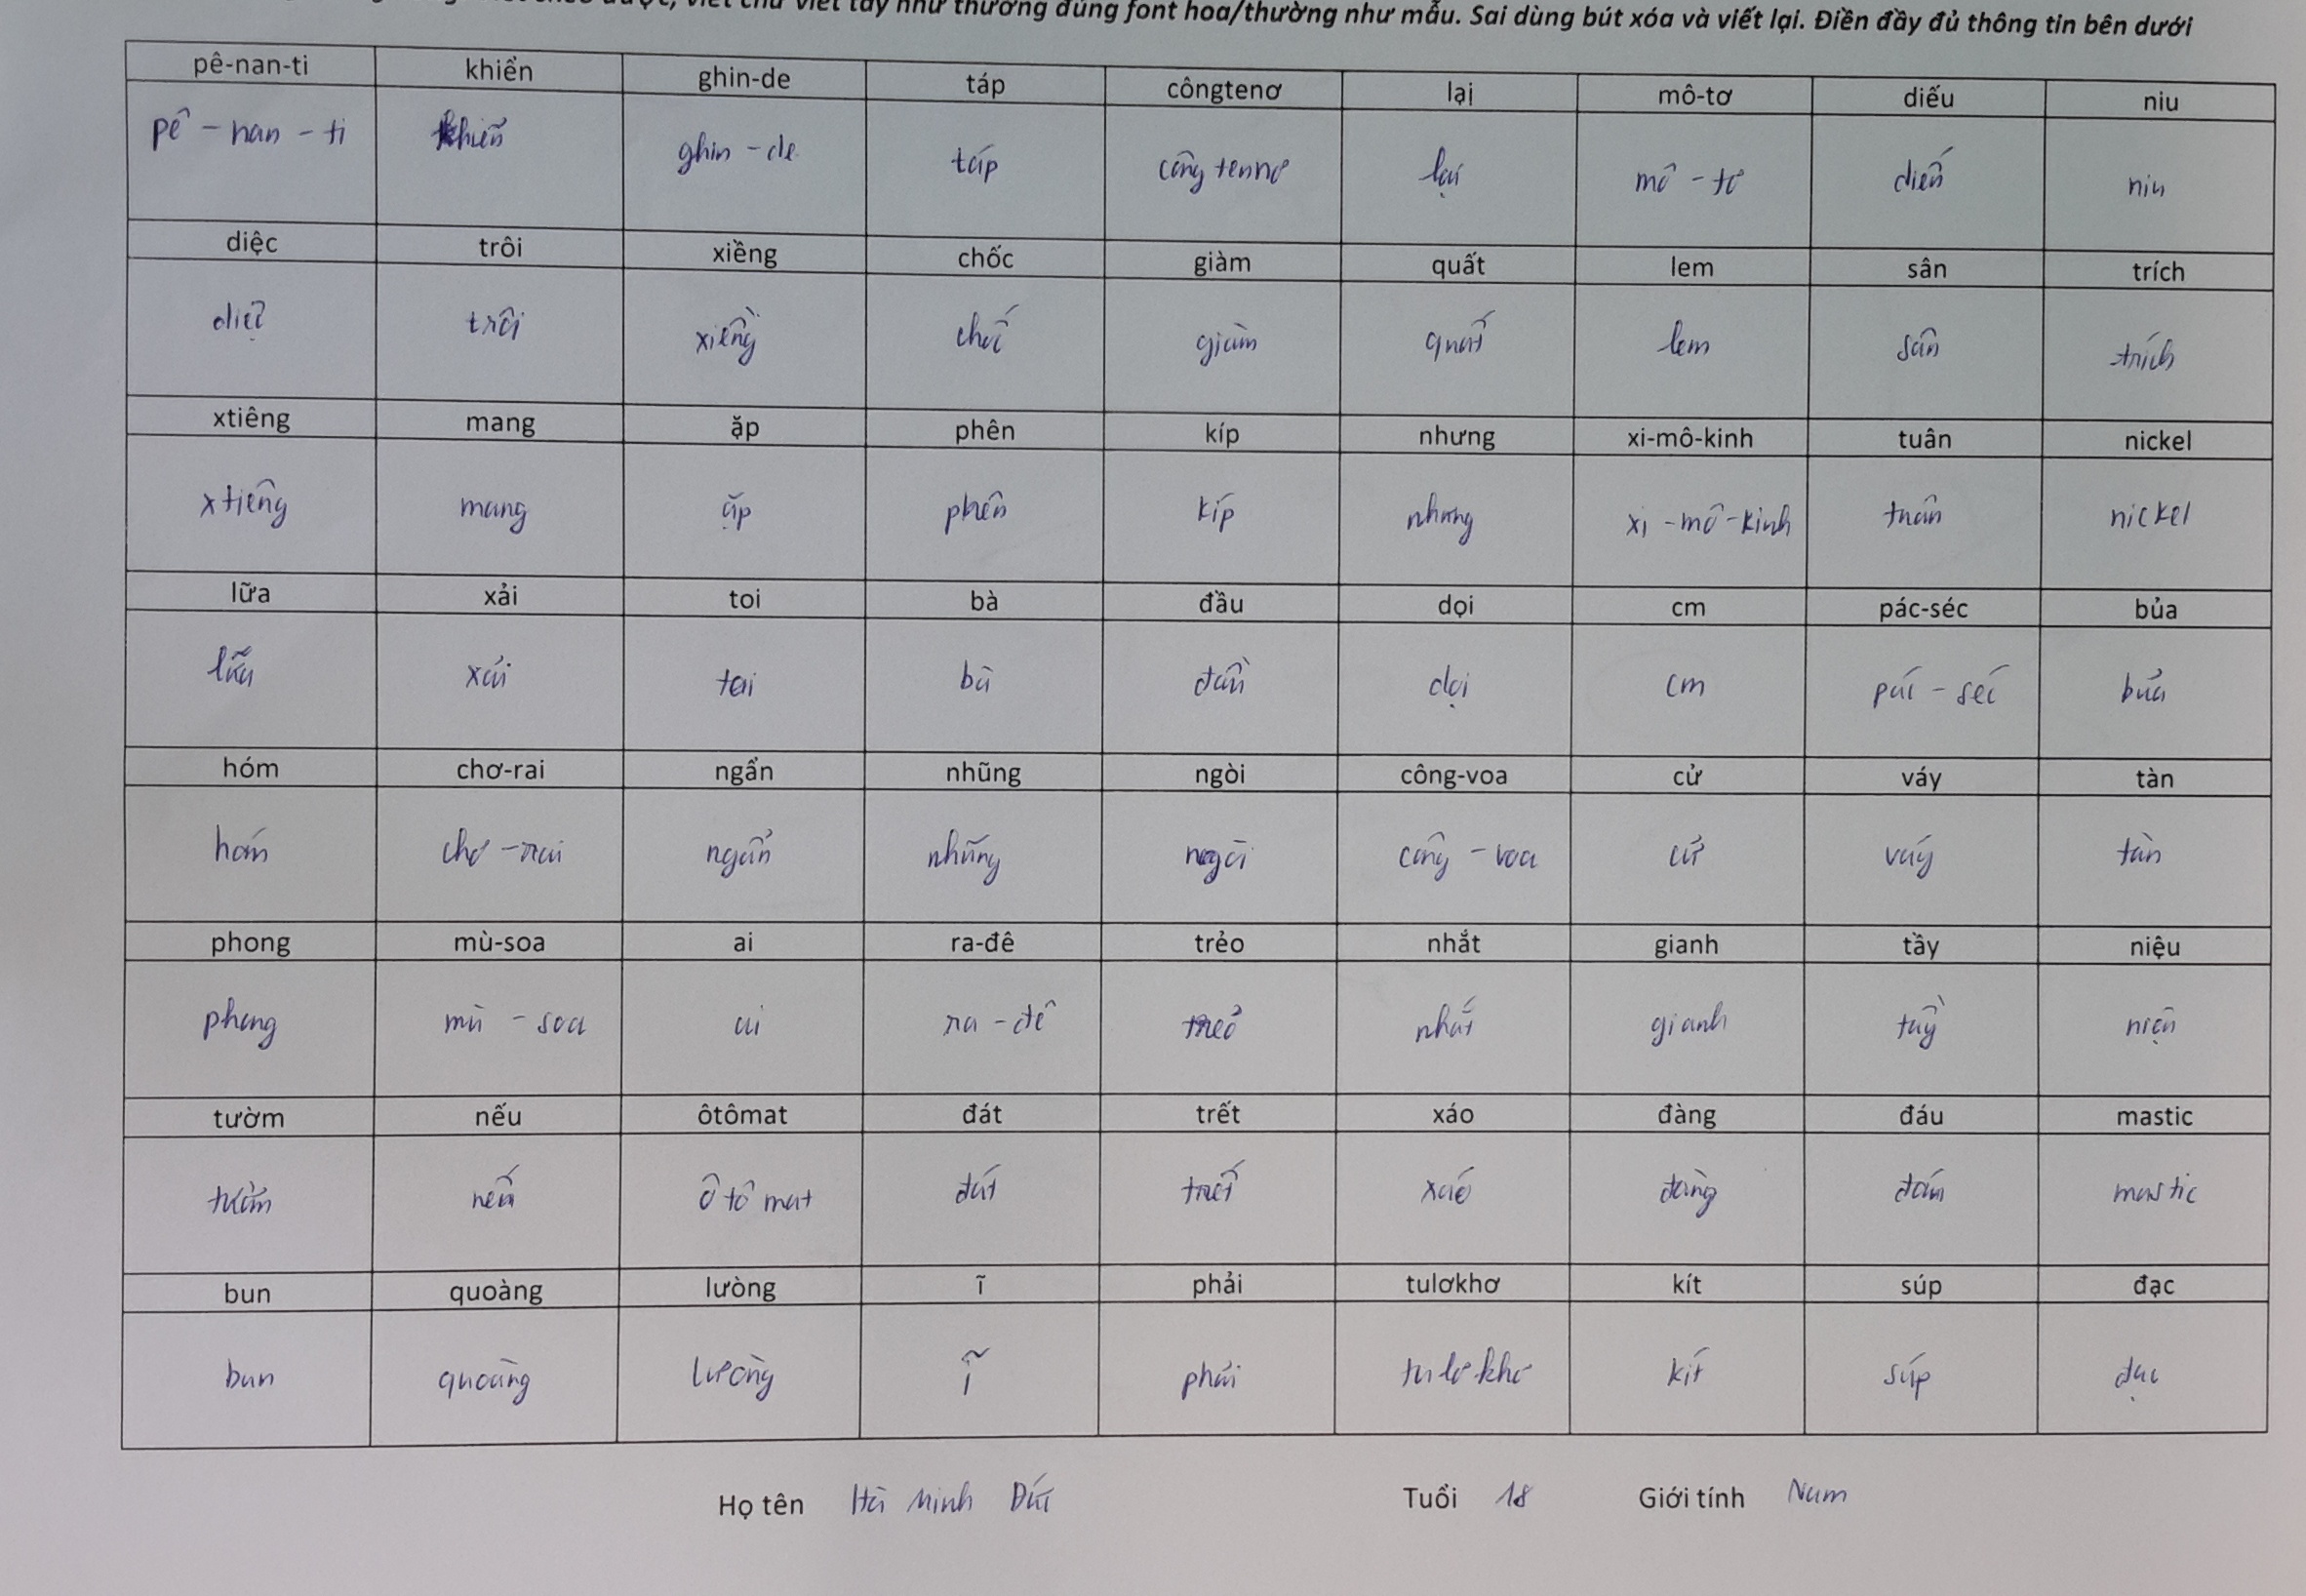 viết chữ viết tay như thường đúng font hoa/thường như mẫu. Sai dùng bút xóa và viết lại. Điền đầy đủ thông tin bên dưới
pê-nan-ti khiển ghin-de táp côngtenơ lại mô-tơ diếu niu
pê - nan - ti khiển ghin - de táp công tennơ lại mô - tơ diếu niu
diệc trôi xiềng chốc giàm quất lem sân trích
diệc trôi xiềng chốc giàm quất lem sân trích
xtiêng mang ặp phên kíp nhưng xi-mô-kinh tuân nickel
xtiêng mang ặp phên kíp nhưng xi - mô - kinh tuân nickel
lữa xải toi bà đầu dọi cm pác-séc bủa
lữa xải toi bà đầu dọi cm pác - séc bủa
hóm chơ-rai ngẩn nhũng ngòi công-voa cử váy tàn
hóm chơ - rai ngẩn nhũng ngòi công - voa cử váy tàn
phong mù-soa ai ra-đê trẻo nhắt gianh tầy niệu
phong mù - soa ai ra - đê trẻo nhắt gianh tầy niệu
tườm nếu ôtômat đát trết xáo đàng đáu mastic
tườm nếu ô tô mat đát trết xáo đàng đáu mastic
bun quoàng lưòng ĩ phải tulơkhơ kít súp đạc
bun quoàng lưòng ĩ phải tu lơ khơ kít súp đạc
Họ tên Hà Minh Đức Tuổi 18 Giới tính Nam